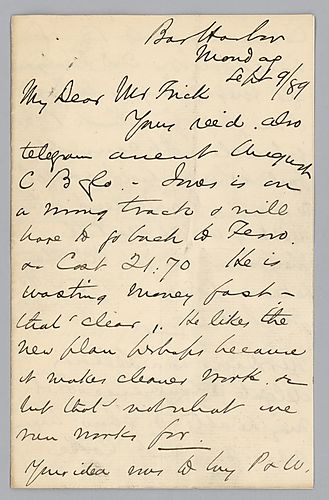 Bar Harbor
Monday
Sept 9/89
My Dear Mr Frick
Yours rec'd. also
telegram anent August
C B Co. - Jones is on
a wrong track & will
have to go back to Ferro.
Cost 21.70 He is
wasting money fast -
that's clear, He likes the
new plan perhaps because
it makes cleaner work.
but that's not what we
run works for.
Your idea was to buy P & W.